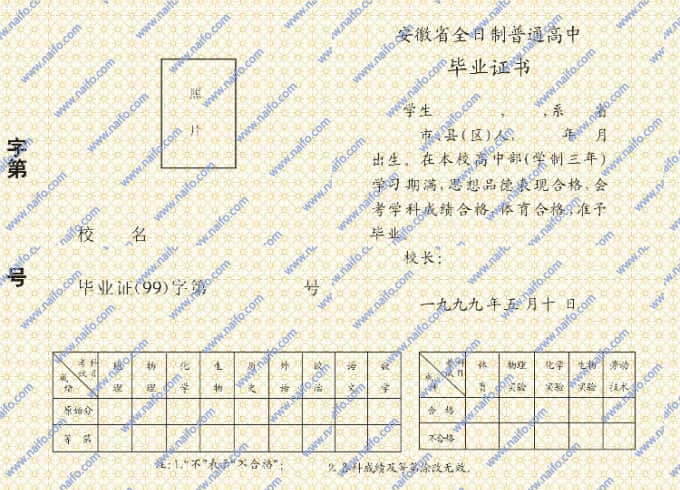 安徽省全日制普通高中
毕业证书
照
片
字第
号
学生 , ,系 省
市、县(区)人, 年 月
出生。在本校高中部(学制三年)
学习期满,思想品德表现合格,会
考学科成绩合格,体育合格,准予
毕业
校长:
校 名
毕业证(99)字第 号
一九九九年五月十 日
考试科目 成绩 地理 物理 化学 生物 历史 外语 政治 语文 数学
原始分
等 第
考试科目 成绩 体育 物理实验 化学实验 生物实验 劳动技术
合 格
不合格
注:1."不"表示"不合格";
2.各科成绩及等第涂改无效。
www.naifo.com